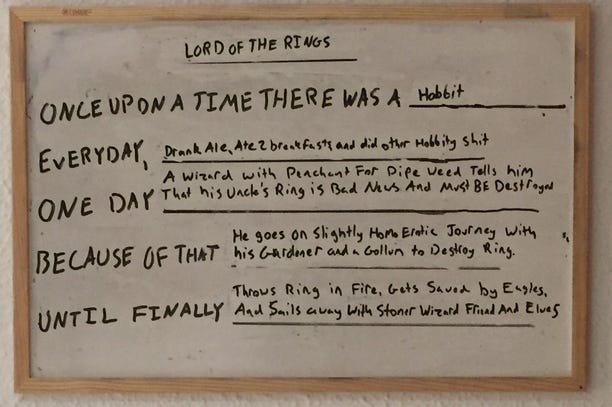 LORD OF THE RINGS
ONCE UPON A TIME THERE WAS A Hobbit
EVERYDAY, Drank Ale, Ate 2 breakfasts and did other Hobbity shit
A Wizard with Penchant For Pipe Weed Tells him
ONE DAY That his Uncle's Ring is Bad News And Must BE Destroyed
He goes on Slightly Homo Erotic Journey With
BECAUSE OF THAT his Gardener and a Gollum to Destroy Ring.
Throws Ring in Fire, Gets Saved by Eagles,
UNTIL FINALLY And Sails away With Stoner Wizard Friend And Elves